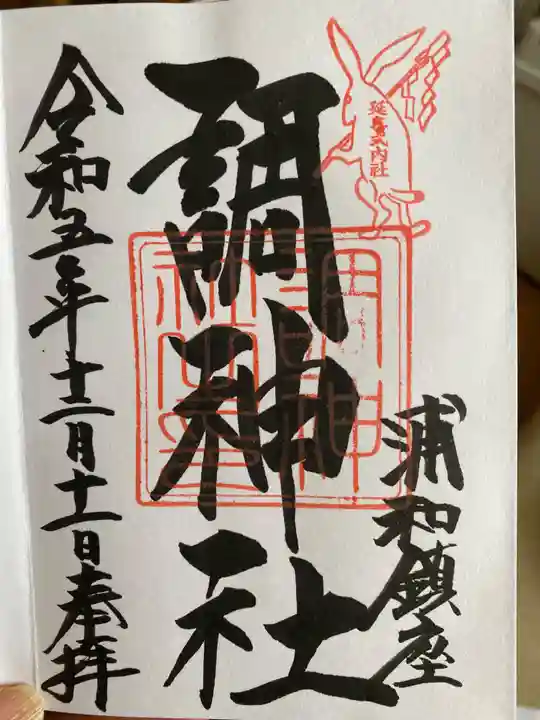 延喜式内社
浦和鎮座
調神社
令和五年十二月十一日奉拝